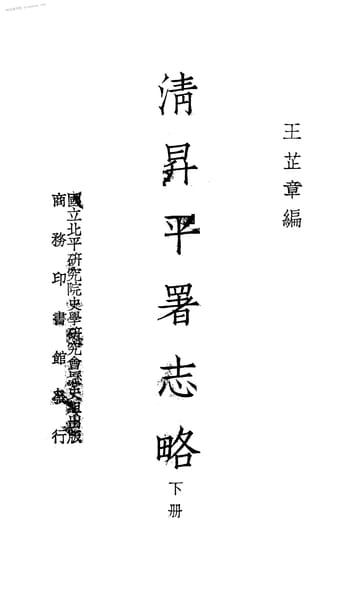 王芷章編
清昇平署志略
下册
國立北平研究院史學研究會歷史組出版
商務印書館發行